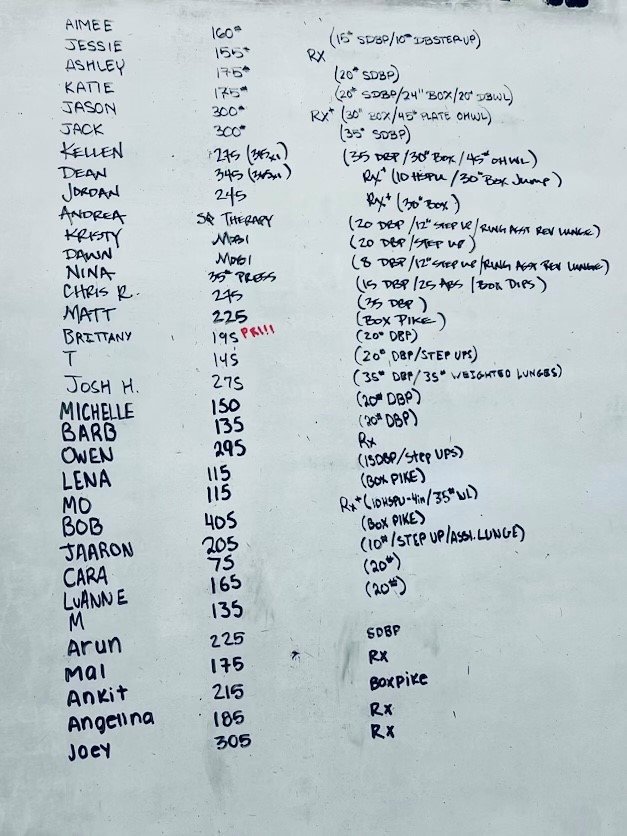 AIMEE 160# (15# SDBP/10# DBSTEP UP)
JESSIE 155# RX
ASHLEY 175# (20# SDBP)
KATIE 175# (20# SDBP/24" BOX/20# DBWL)
JASON 300# RX+ (30" BOX/45# PLATE OHWL)
JACK 300# (35# SDBP)
KELLEN 275 (35 DBP/30" Box/45# OHWL)
DEAN 345 RX+ (10 HSPU/30" Box Jump)
JORDAN 245 RX+ (30" Box)
ANDREA SQ THERAPY (20 DBP/12" STEP UP/RING ASST REV LUNGE)
KRISTY MOBI (20 DBP/STEP UP)
DAWN MOBI (8 DBP/12" STEP UP/RING ASST REV LUNGE)
NINA 35# PRESS (15 DBP/25 ABS/BOX DIPS)
CHRIS R. 275 (35 DBP)
MATT 225 (BOX PIKE)
BRITTANY 195 PR!!! (20# DBP)
T 145 (20# DBP/STEP UPS)
JOSH H. 275 (35# DBP/35# WEIGHTED LUNGES)
MICHELLE 150 (20# DBP)
BARB 135 (20# DBP)
OWEN 295 Rx
LENA 115 (15DBP/Step UPS)
MO 115 (BOX PIKE)
BOB 405 Rx+(10HSPU-4in/35# WL)
JAARON 205 (BOX PIKE)
CARA 75 (10#/STEP UP/ASSI.LUNGE)
LUANNE 165 (20#)
M 135 (20#)
Arun 225 SDBP
Mal 175 RX
Ankit 215 BoxPike
Angelina 185 Rx
Joey 305 Rx